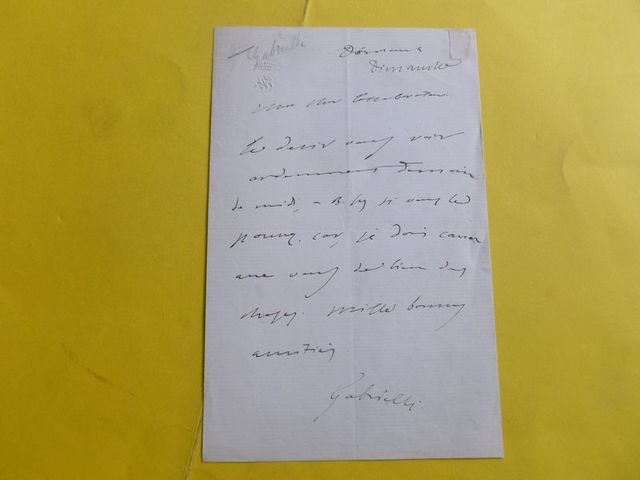 Gabrielli
Dimanche
Mon cher Collaborateur
Je desire vous voir
ardemment demain
de midi à
car, je dois causer
avec vous de bien des
choses. Mille bonnes
amitiés
Gabrielli.